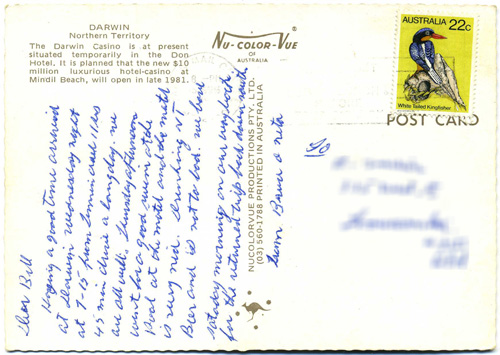 DARWIN
Northern Territory
The Darwin Casino is at present
situated temporarily in the Don
Hotel. It is planned that the new $10
million luxurious hotel-casino at
Mindil Beach, will open in late 1981.
NU-COLOR-VUE
OF
AUSTRALIA
AUSTRALIA 22c
White Tailed Kingfisher
POST CARD
NUCOLORVUE PRODUCTIONS PTY. LTD.
(03) 560-1786 PRINTED IN AUSTRALIA
Dear Bill
Having a good time arrived
at Darwin Wednesday night
at 7-15 from 11 hrs
45 min drive a long day. we
are all well. Thursday afternoon
went for a good swim at the
Pool at the motel and the motel
is very nice. Drinking NT
Beer and is not to bad. we head
saturday morning on our way back
for the returned trip back down south
from
To